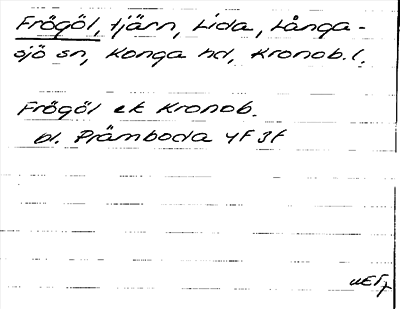 Frögöl, tjärn, Lida, Långa-
sjö sn, Konga hd, Kronob.l.
Frögöl ek Kronob.
bl. Pråmboda 4F 3f